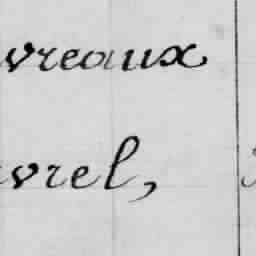 vreaux
vrel,